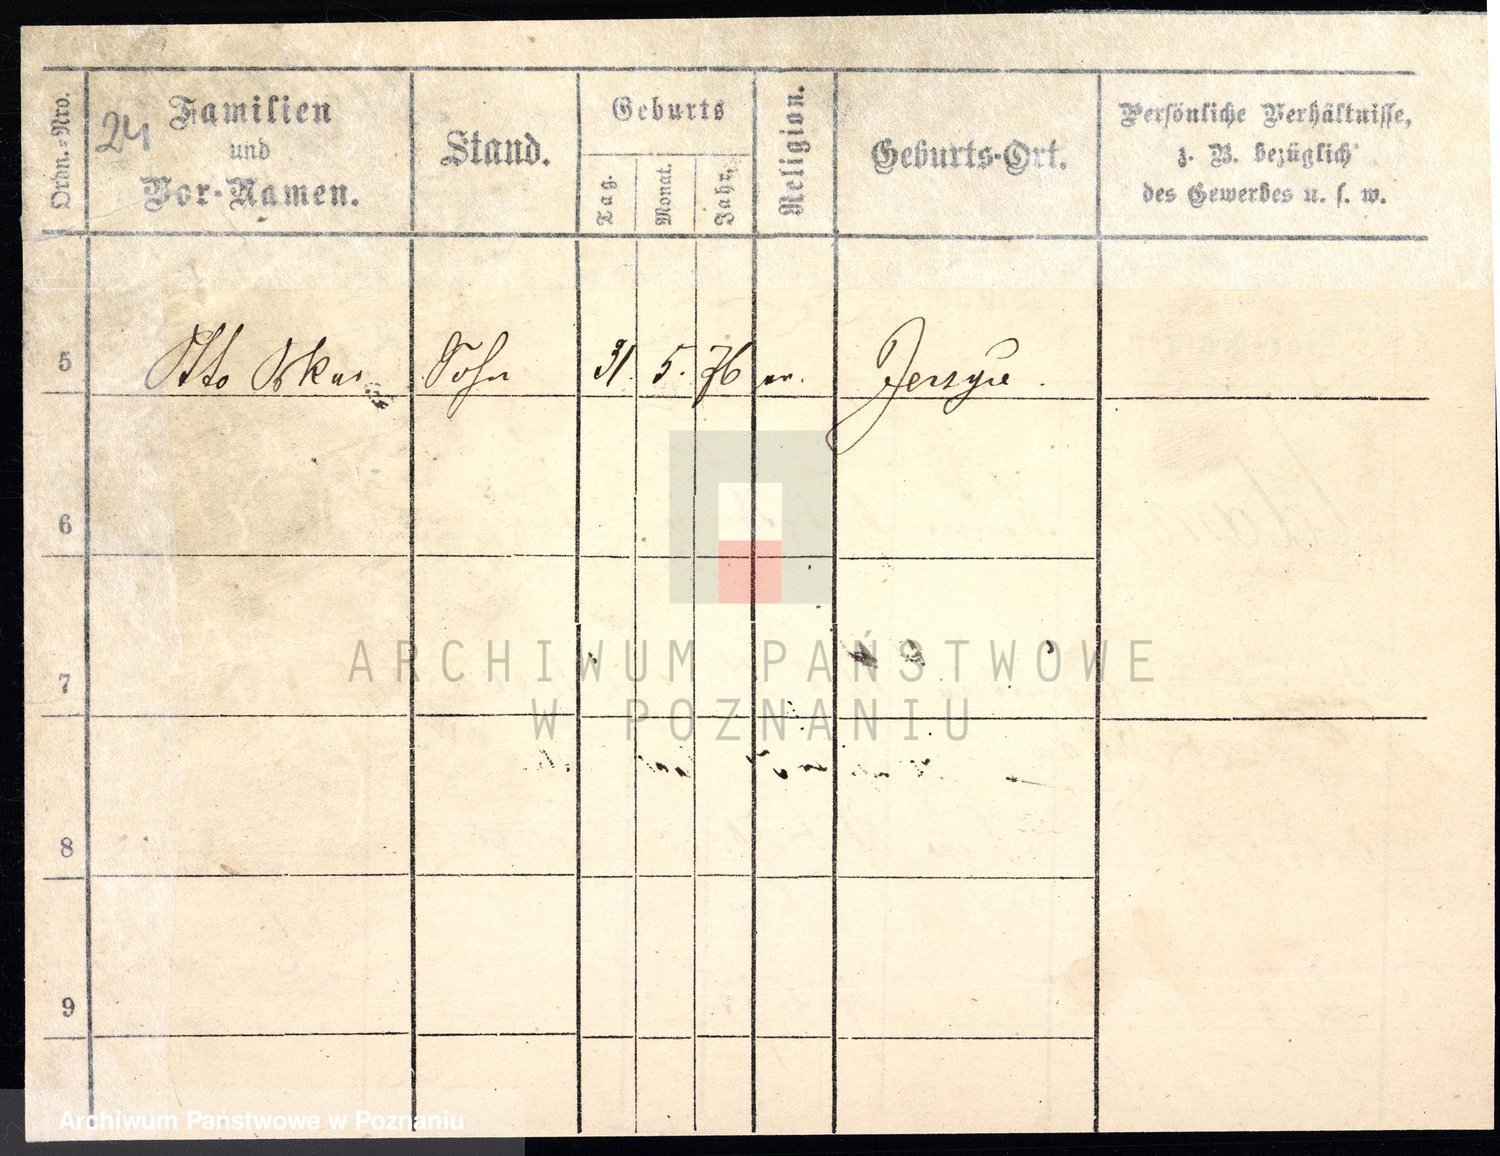 Ordn.=Nro.
24
Familien
und
Vor-Namen.
Stand.
Geburts
Tag.
Monat.
Jahr.
Religion.
Geburts-Ort.
Persönliche Verhältnisse,
z. B. bezüglich
des Gewerbes u. s. w.
5 Otto Oskar Sohn 31. 5. 76 ev. Jerzyce.
6
7
8
9
ARCHIWUM PAŃSTWOWE
W POZNANIU
Archiwum Państwowe w Poznaniu